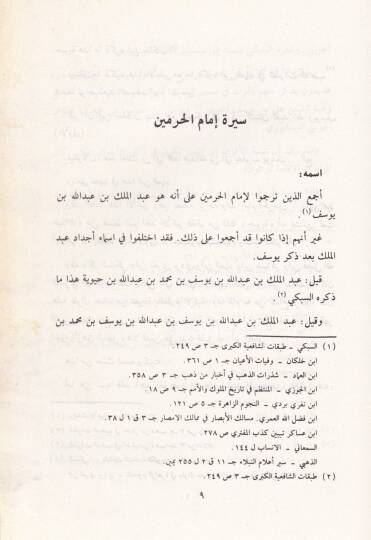 سيرة إمام الحرمين
اسمه:
أجمع الذين ترجموا لإمام الحرمين على أنه هو عبد الملك بن عبدالله بن
يوسف (١).
غير أنهم إذا كانوا قد أجمعوا على ذلك. فقد اختلفوا في اسماء أجداد عبد
الملك بعد ذكر يوسف.
قيل: عبد الملك بن عبدالله بن يوسف بن محمد بن عبدالله بن حيوية هذا ما
ذكره السبكي (٢).
وقيل: عبد الملك بن عبدالله بن يوسف بن عبدالله بن يوسف بن محمد بن
(١) السبكي - طبقات الشافعية الكبرى جـ ٣ ص ٢٤٩.
ابن خلكان - وفيات الأعيان جـ ١ ص ٣٦١.
ابن العماد - شذرات الذهب في أخبار من ذهب جـ ٣ ص ٣٥٨.
ابن الجوزي - المنتظم في تاريخ الملوك والأمم جـ ٩ ص ١٨.
ابن تغري بردي - النجوم الزاهرة جـ ٥ ص ١٢١.
ابن فضل الله العمري. مسالك الأبصار في ممالك الامصار جـ ٣ ق ١ ل ٣٨.
ابن عساكر تبيين كذب المفتري ص ٢٧٨.
السمعاني - الانساب ل ١٤٤.
الذهبي - سير أعلام النبلاء جـ ١١ ق ٢ ل ٢٥٥ يمين.
(٢) طبقات الشافعية الكبرى جـ ٣ ص ٢٤٩.
٩